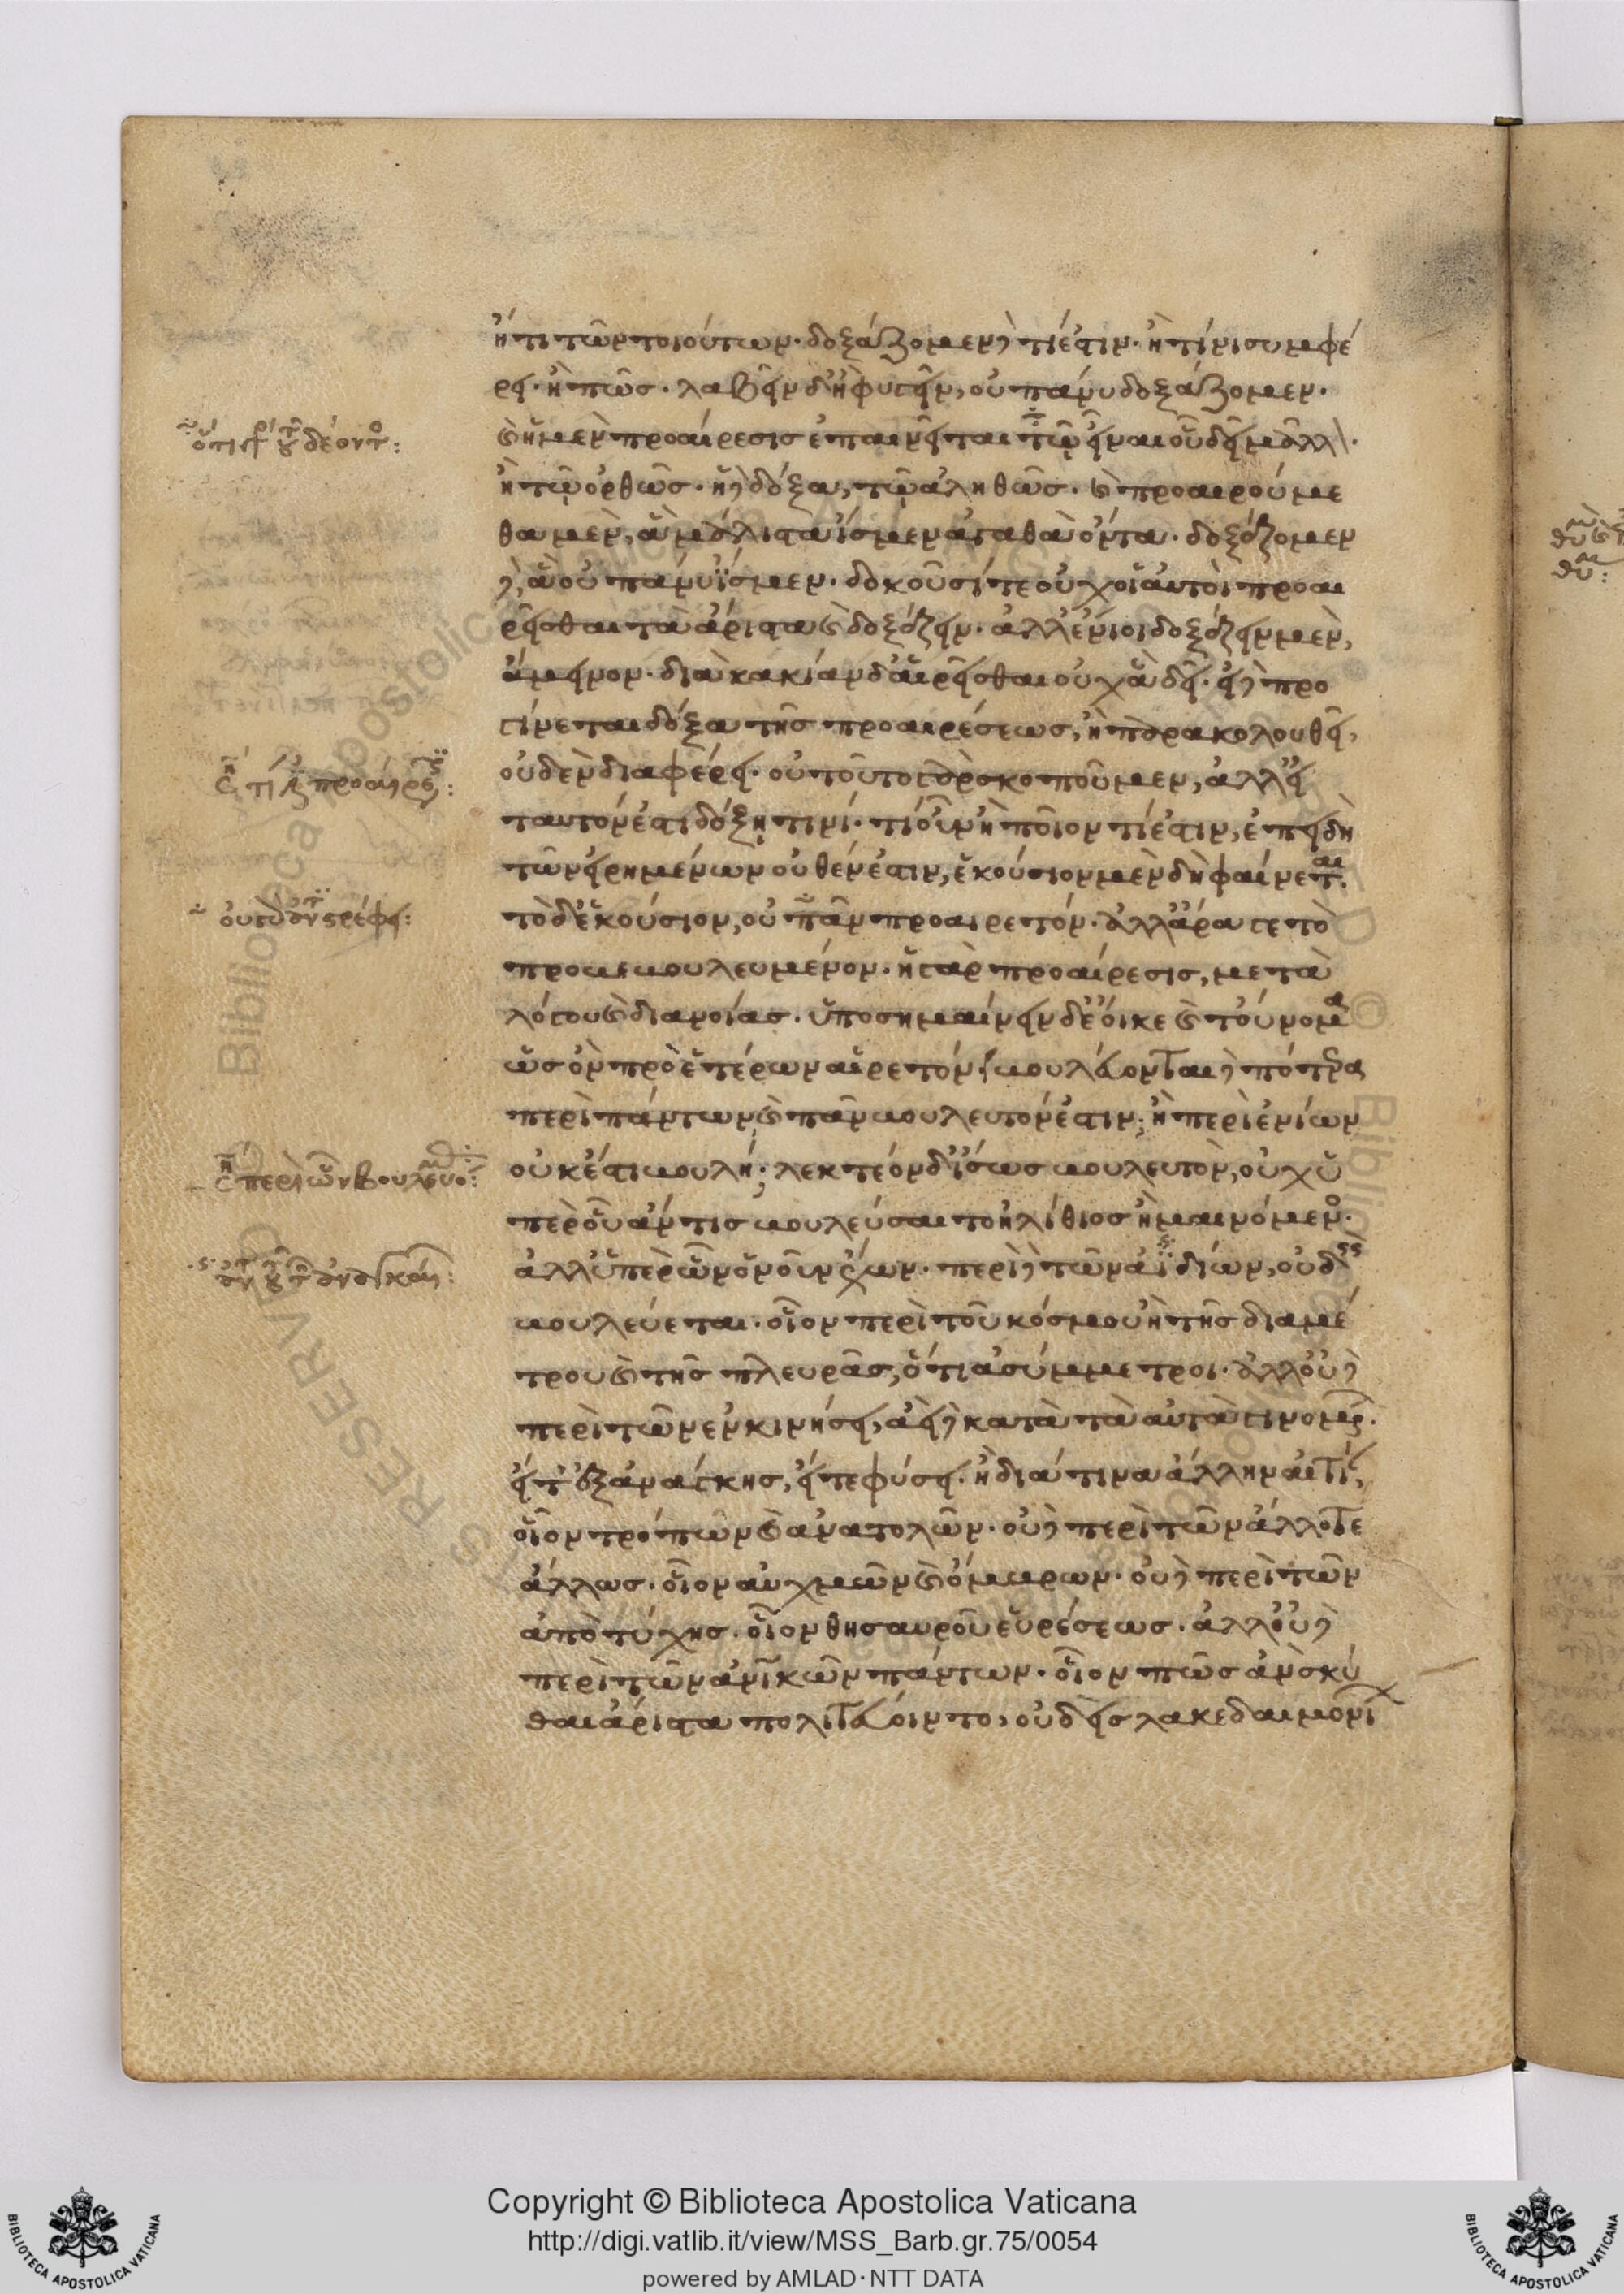 ἤ τι τῶν τοιούτων· δοξάζομεν δὲ τί ἐστιν· ἢ τίνι συμφέ
ρει· ἢ πῶς· λαβεῖν δ' ἢ φυγεῖν, οὐ πάνυ δοξάζομεν·
καὶ ἡ μὲν προαίρεσις ἐπαινεῖται τῷ εἶναι οὗ δεῖ μᾶλλ·
ἢ τῷ ὀρθῶς· ἡ δὲ δόξα, τῷ ἀληθῶς· καὶ προαιρούμε
θα μὲν, ἃ μάλιστα ἴσμεν ἀγαθὰ ὄντα· δοξάζομεν
δὲ, ἃ οὐ πάνυ ἴσμεν· δοκοῦσί τε οὐχ οἱ αὐτοὶ προαι
ρεῖσθαι τὰ ἄριστα καὶ δοξάζειν· ἀλλ' ἔνιοι δοξάζειν μὲν,
ἄμεινον· διὰ κακίαν δ' αἱρεῖσθαι οὐχ ἃ δεῖ· εἰ δὲ προ
γίνεται δόξα τῆς προαιρέσεως, ἢ παρακολουθεῖ,
οὐδὲν διαφέρει· οὐ τοῦτο γὰρ σκοποῦμεν, ἀλλ' εἰ
ταυτόν ἐστι δόξῃ τινί· τί οὖν ἢ ποῖόν τί ἐστιν, ἐπειδὴ
τῶν εἰρημένων οὐθέν ἐστιν, ἑκούσιον μὲν δὴ φαίνεται·
τὸ δ' ἑκούσιον, οὐ πᾶν προαιρετόν· ἀλλ' ἆρά γε τὸ
προβεβουλευμένον· ἡ γὰρ προαίρεσις, μετὰ
λόγου καὶ διανοίας· ὑποσημαίνειν δ' ἔοικε καὶ τοὔνομα
ὡς ὂν πρὸ ἑτέρων αἱρετόν· βουλεύονται δὲ πότερα
περὶ πάντων καὶ πᾶν βουλευτόν ἐστιν; ἢ περὶ ἐνίων
οὐκ ἔστι βουλή; λεκτέον δ' ἴσως βουλευτὸν, οὐχ ὑ
πὲρ οὗ ἄν τις βουλεύσαιτο ἠλίθιος ἢ μαινόμενος·
ἀλλ' ὑπὲρ ὧν ὁ νοῦν ἔχων· περὶ δὲ τῶν ἀϊδίων, οὐδεὶς
βουλεύεται· οἷον περὶ τοῦ κόσμου ἢ τῆς διαμέ
τρου καὶ τῆς πλευρᾶς, ὅτι ἀσύμμετροι· ἀλλ' οὐδὲ
περὶ τῶν ἐν κινήσει, ἀεὶ δὲ κατὰ τὰ αὐτὰ γινομένων·
εἴτ' ἐξ ἀνάγκης, εἴτε φύσει· ἢ διά τινα ἄλλην αἰτίαν,
οἷον τροπῶν καὶ ἀνατολῶν· οὐδὲ περὶ τῶν ἄλλοτε
ἄλλως· οἷον αὐχμῶν καὶ ὄμβρων· οὐδὲ περὶ τῶν
ἀπὸ τύχης· οἷον θησαυροῦ εὑρέσεως· ἀλλ' οὐδὲ
περὶ τῶν ἀνθρωπικῶν πάντων· οἷον πῶς ἂν σκύ
θαι ἄριστα πολιτεύοιντο, οὐδεὶς λακεδαιμονί
Copyright © Biblioteca Apostolica Vaticana
http://digi.vatlib.it/view/MSS_Barb.gr.75/0054
powered by AMLAD·NTT DATA
BIBLIOTECA APOSTOLICA VATICANA
BIBLIOTECA APOSTOLICA VATICANA